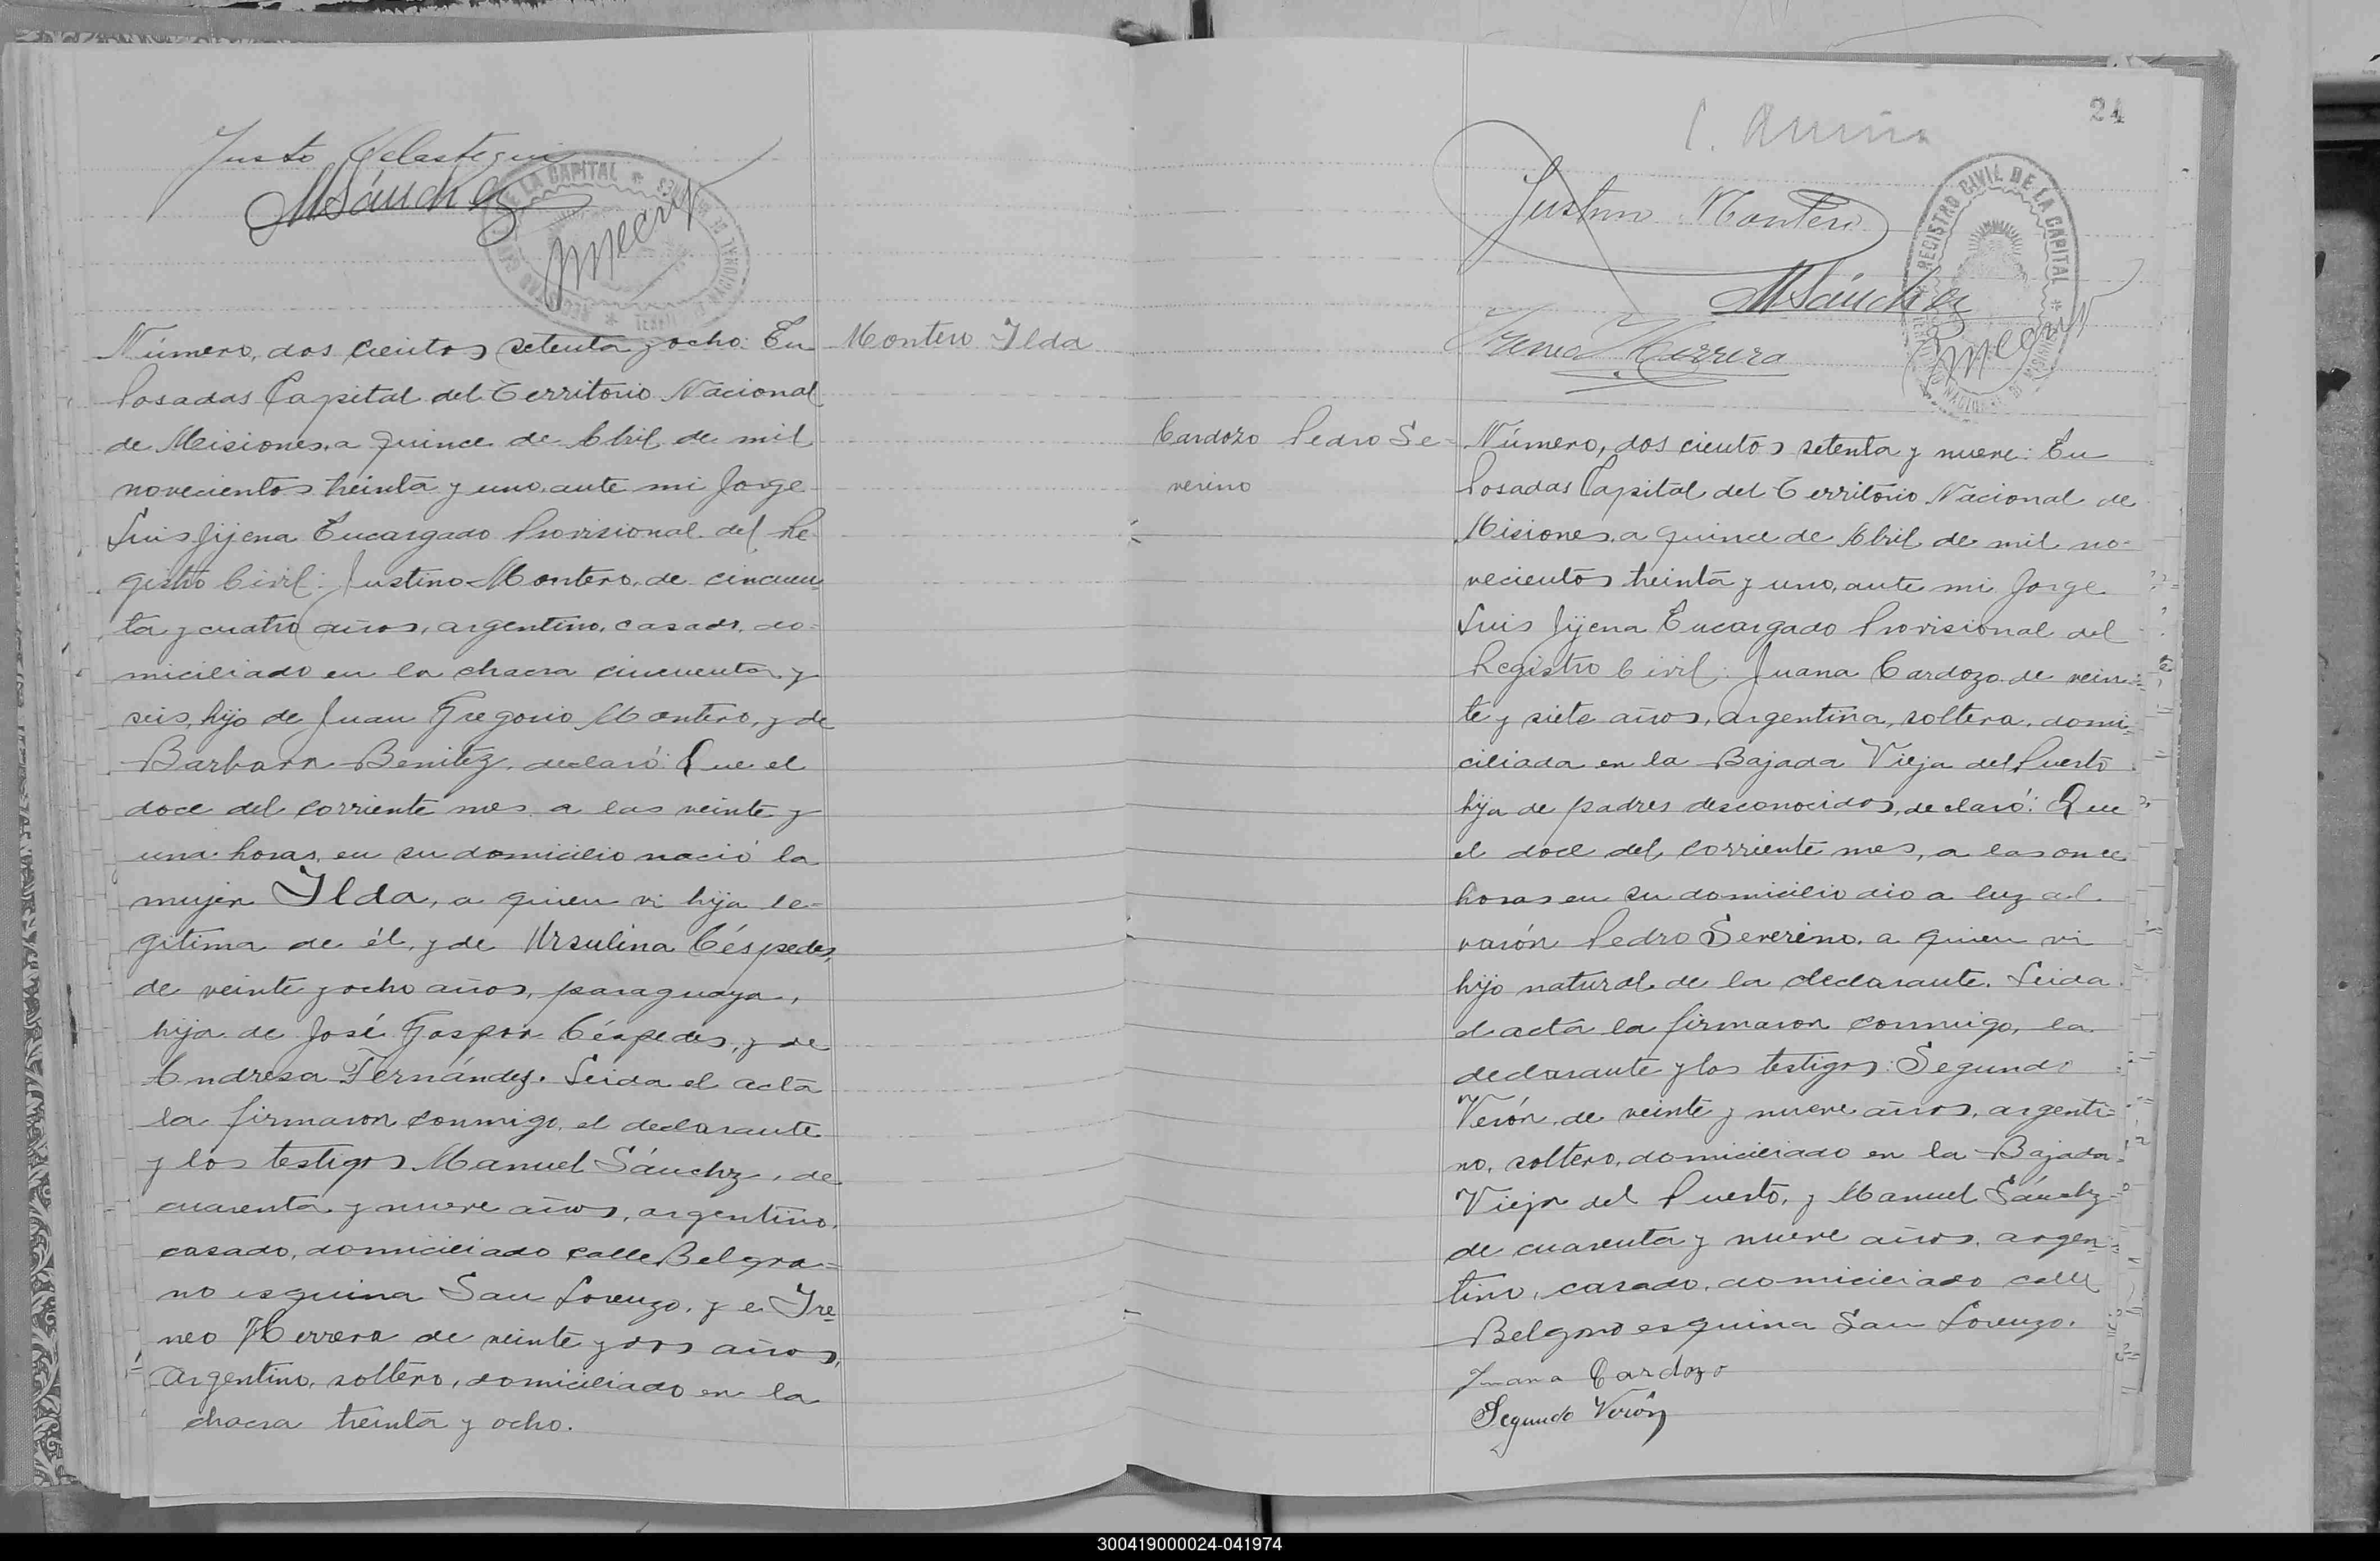 Justo Velastegui
MSánchez
REGISTRO CIVIL DE LA CAPITAL
Número, dos cientos setenta y ocho: En
Posadas Capital del Territorio Nacional
de Misiones, a quince de Abril de mil
novecientos treinta y uno, ante mi Jorge
Luis Jijena Encargado Provisional del Re-
gistro Civil: Justino Montero, de cincuen=
ta y cuatro años, argentino, casado, do=
miciliado en la chacra cincuenta y
seis, hijo de Juan Gregorio Montero, y de
Barbara Benitez, declaró: Que el
doce del corriente mes a las veinte y
una horas, en su domicilio nació la
mujer Ilda, a quien vi hija le-
gitima de él, y de Ursulina Céspedes,
de veinte y ocho años, paraguaya,
hija de José Gaspar Céspedes, y de
Andresa Fernández. Leida el acta
la firmaron conmigo, el declarante
y los testigos Manuel Sánchz, de
cuarenta y nueve años, argentino,
casado, domiciliado calle Belgra=
no esquina San Lorenzo, y e Ire=
neo Herrera de veinte y dos años,
argentino, soltero, domiciliado en la
chacra treinta y ocho.
Montero Ilda
24
Justino Montero
MSánchez
Ireneo Herrera
REGISTRO CIVIL DE LA CAPITAL
Cardozo Pedro Se=
verino
Número, dos cientos setenta y nueve: En
Posadas Capital del Territorio Nacional de
Misiones, a quince de Abril de mil no-
vecientos treinta y uno, ante mi Jorge
Luis Jijena Encargado Provisional del
Registro Civil: Juana Cardozo de vein=
te y siete años, argentina, soltera, domi=
ciliada en la Bajada Vieja del Puerto
hija de padres desconocidos, declaró: Que
el doce del corriente mes, a las once
horas en su domicilio dio a luz al
varón Pedro Severino, a quien vi
hijo natural de la declarante. Leida
el acta la firmaron conmigo, la
declarante y los testigos: Segundo
Verón, de veinte y nueve años, argenti=
no, soltero, domiciliado en la Bajada
Vieja del Puerto, y Manuel Sánchz
de cuarenta y nueve años, argen=
tino, casado, domiciliado calle
Belgrano esquina San Lorenzo.
Juana Cardozo
Segundo Verón
300419000024-041974